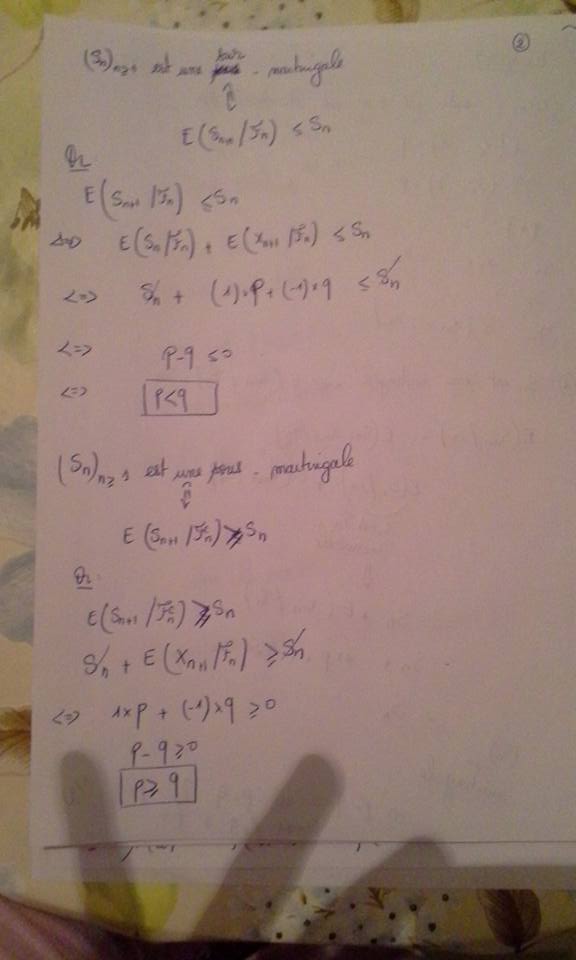 ②
(Sₙ)ₙ≥₁ est une sur - martingale
⇕
E(Sₙ₊₁/ℱₙ) ≤ Sₙ
Or
E(Sₙ₊₁/ℱₙ) ≤ Sₙ
<=> E(Sₙ/ℱₙ) + E(Xₙ₊₁/ℱₙ) ≤ Sₙ
<=> Sₙ + (1)×p + (-1)×q ≤ Sₙ
<=> p-q ≤ 0
<=> p<q
(Sₙ)ₙ≥₁ est une sous - martingale
⇕
E(Sₙ₊₁/ℱₙ) ≥ Sₙ
Or
E(Sₙ₊₁/ℱₙ) ≥ Sₙ
Sₙ + E(Xₙ₊₁/ℱₙ) ≥ Sₙ
<=> 1×p + (-1)×q ≥ 0
p-q ≥ 0
p ≥ q